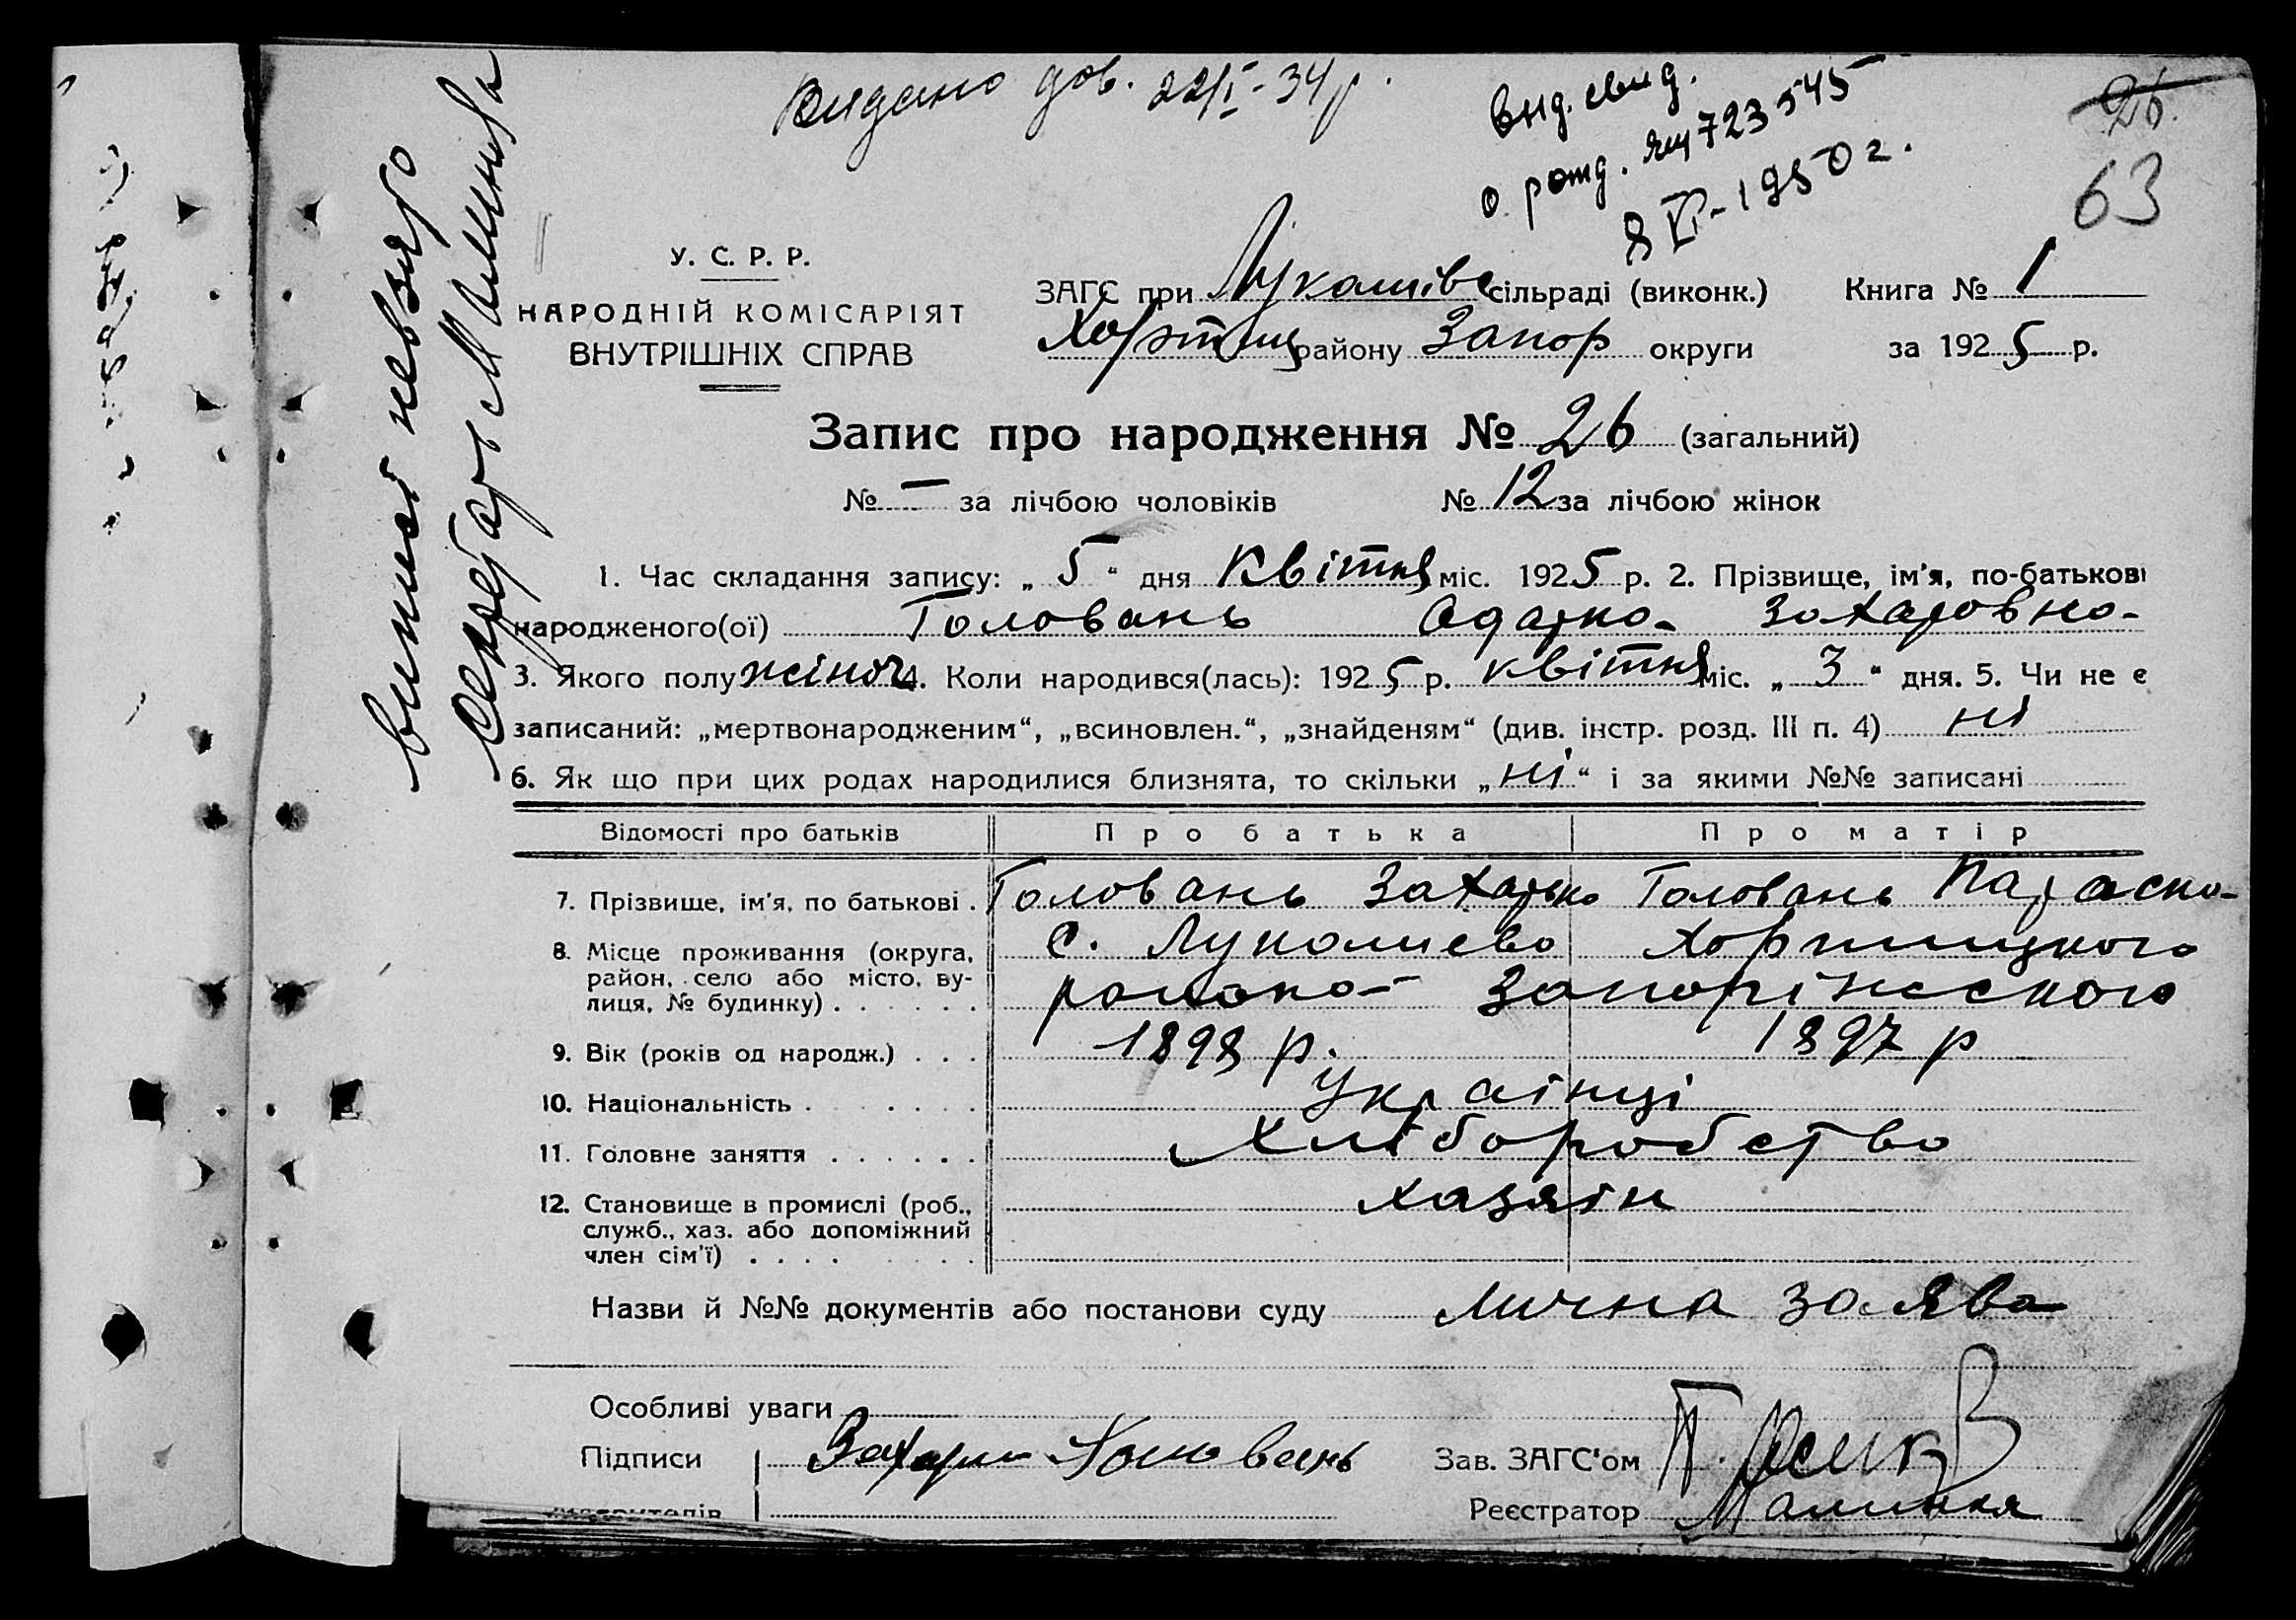 Видано дов. 22/I-34 р.
Выд. свид.
о рожд. ЯЦ 723545
8 VI-1950 г.
26.
63
виписі невзято
Секретарь Малинка
У. С. Р. Р.
НАРОДНІЙ КОМІСАРІЯТ
ВНУТРІШНІХ СПРАВ
ЗАГС при Лукашівс сільраді (виконк.) Книга № 1
Хортиц району Запор округи за 1925 р.
Запис про народження № 26 (загальний)
№ — за лічбою чоловіків № 12 за лічбою жінок
1. Час складання запису: „5“ дня Квітня міс. 1925 р. 2. Прізвище, ім’я, по-батькові
народженого(ої) Головань Одарка Захаровна
3. Якого полу жіноч 4. Коли народився(лась): 1925 р. квітня міс. „3“ дня. 5. Чи не є
записаний: „мертвонародженим“, „всиновлен.“, „знайденям“ (див. інстр. розд. III п. 4) ні
6. Як що при цих родах народилися близнята, то скільки „ні“ і за якими №№ записані
Відомості про батьків Про батька Про матір
7. Прізвище, ім’я, по батькові . Головань Захарько Головань Параска
8. Місце проживання (округа, с. Лукашево Хортицкого
район, село або місто, ву-
лиця, № будинку) . . . . . . району Запоріжського
9. Вік (років од народж.) . . . 1898 р. 1897 р
10. Національність . . . . . . . Українці
11. Головне заняття . . . . . . Хліборобство
12. Становище в промислі (роб., хазяїн
служб., хаз. або допоміжний
член сім’ї) . . . .
Назви й №№ документів або постанови суду лична заява
Особливі уваги
Підписи Захарий Головань Зав. ЗАГС‘ом
Реєстратор Малинка